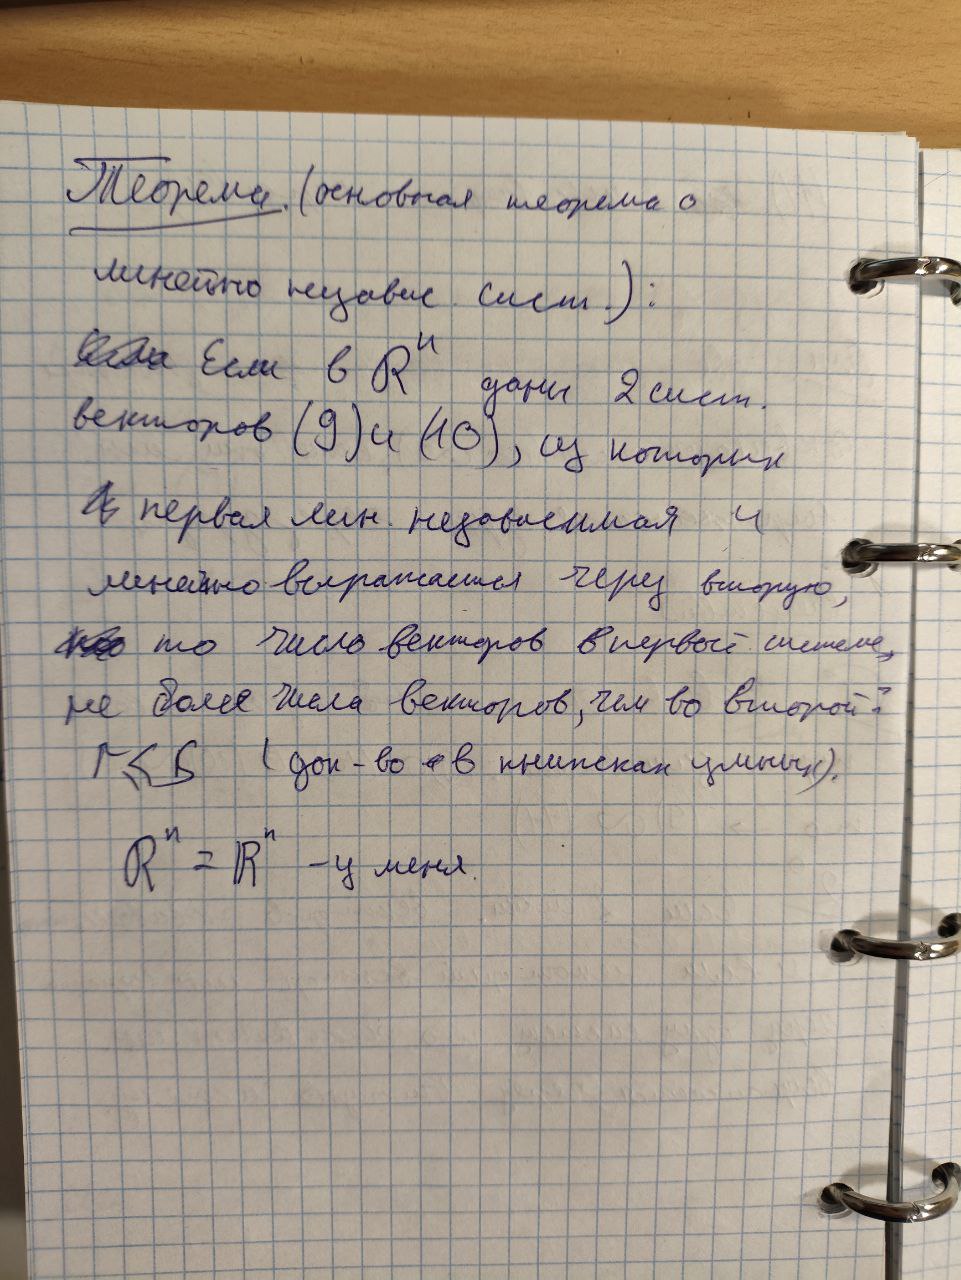 Теорема. (основная теорема о
линейно независ. сист.):
Если в R^n даны 2 сист.
векторов (9) и (10), из которых
первая лин. независимая и
линейно выражается через вторую,
то число векторов в первой системе,
не более числа векторов, чем во второй:
r ⩽ s (док-во в книжках умных).
R^n = ℝ^n - у меня.